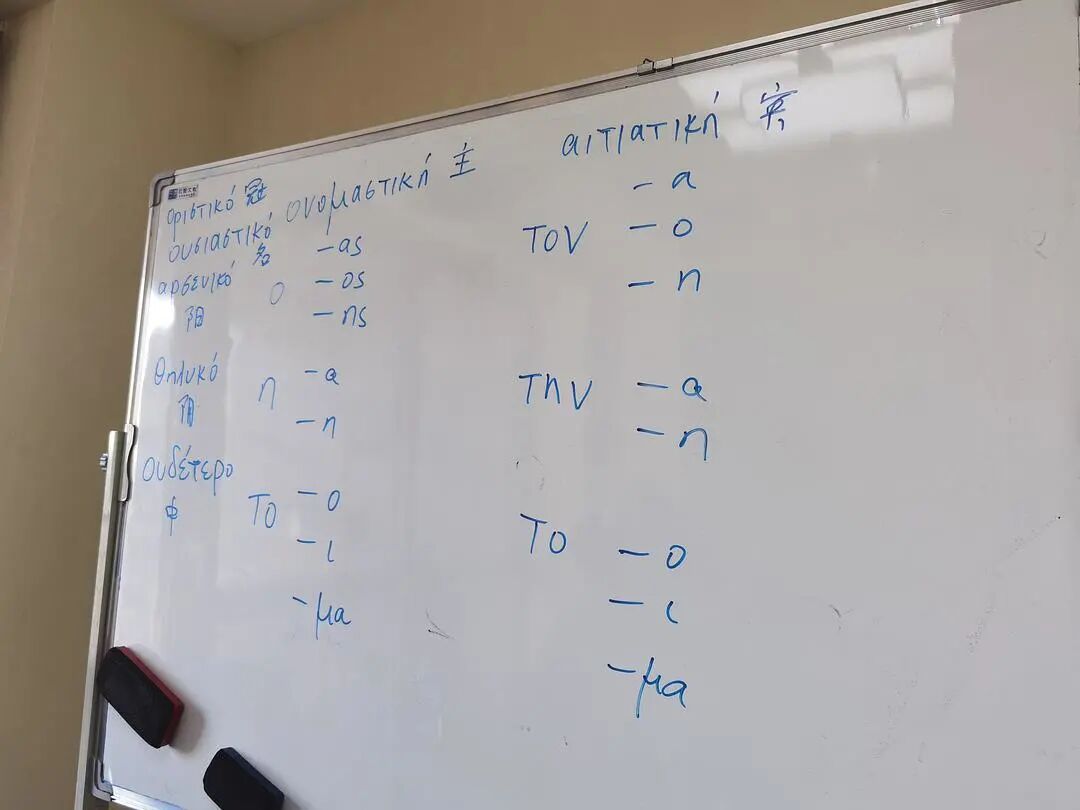 οριστικό 冠
ουσιαστικό 名
ονομαστική 主
αιτιατική 宾
αρσενικό
阳
ο
-ας
-ος
-ης
τον
-α
-ο
-η
θηλυκό
η
-α
-η
την
-α
-η
ουδέτερο
中
το
-ο
-ι
-μα
το
-ο
-ι
-μα